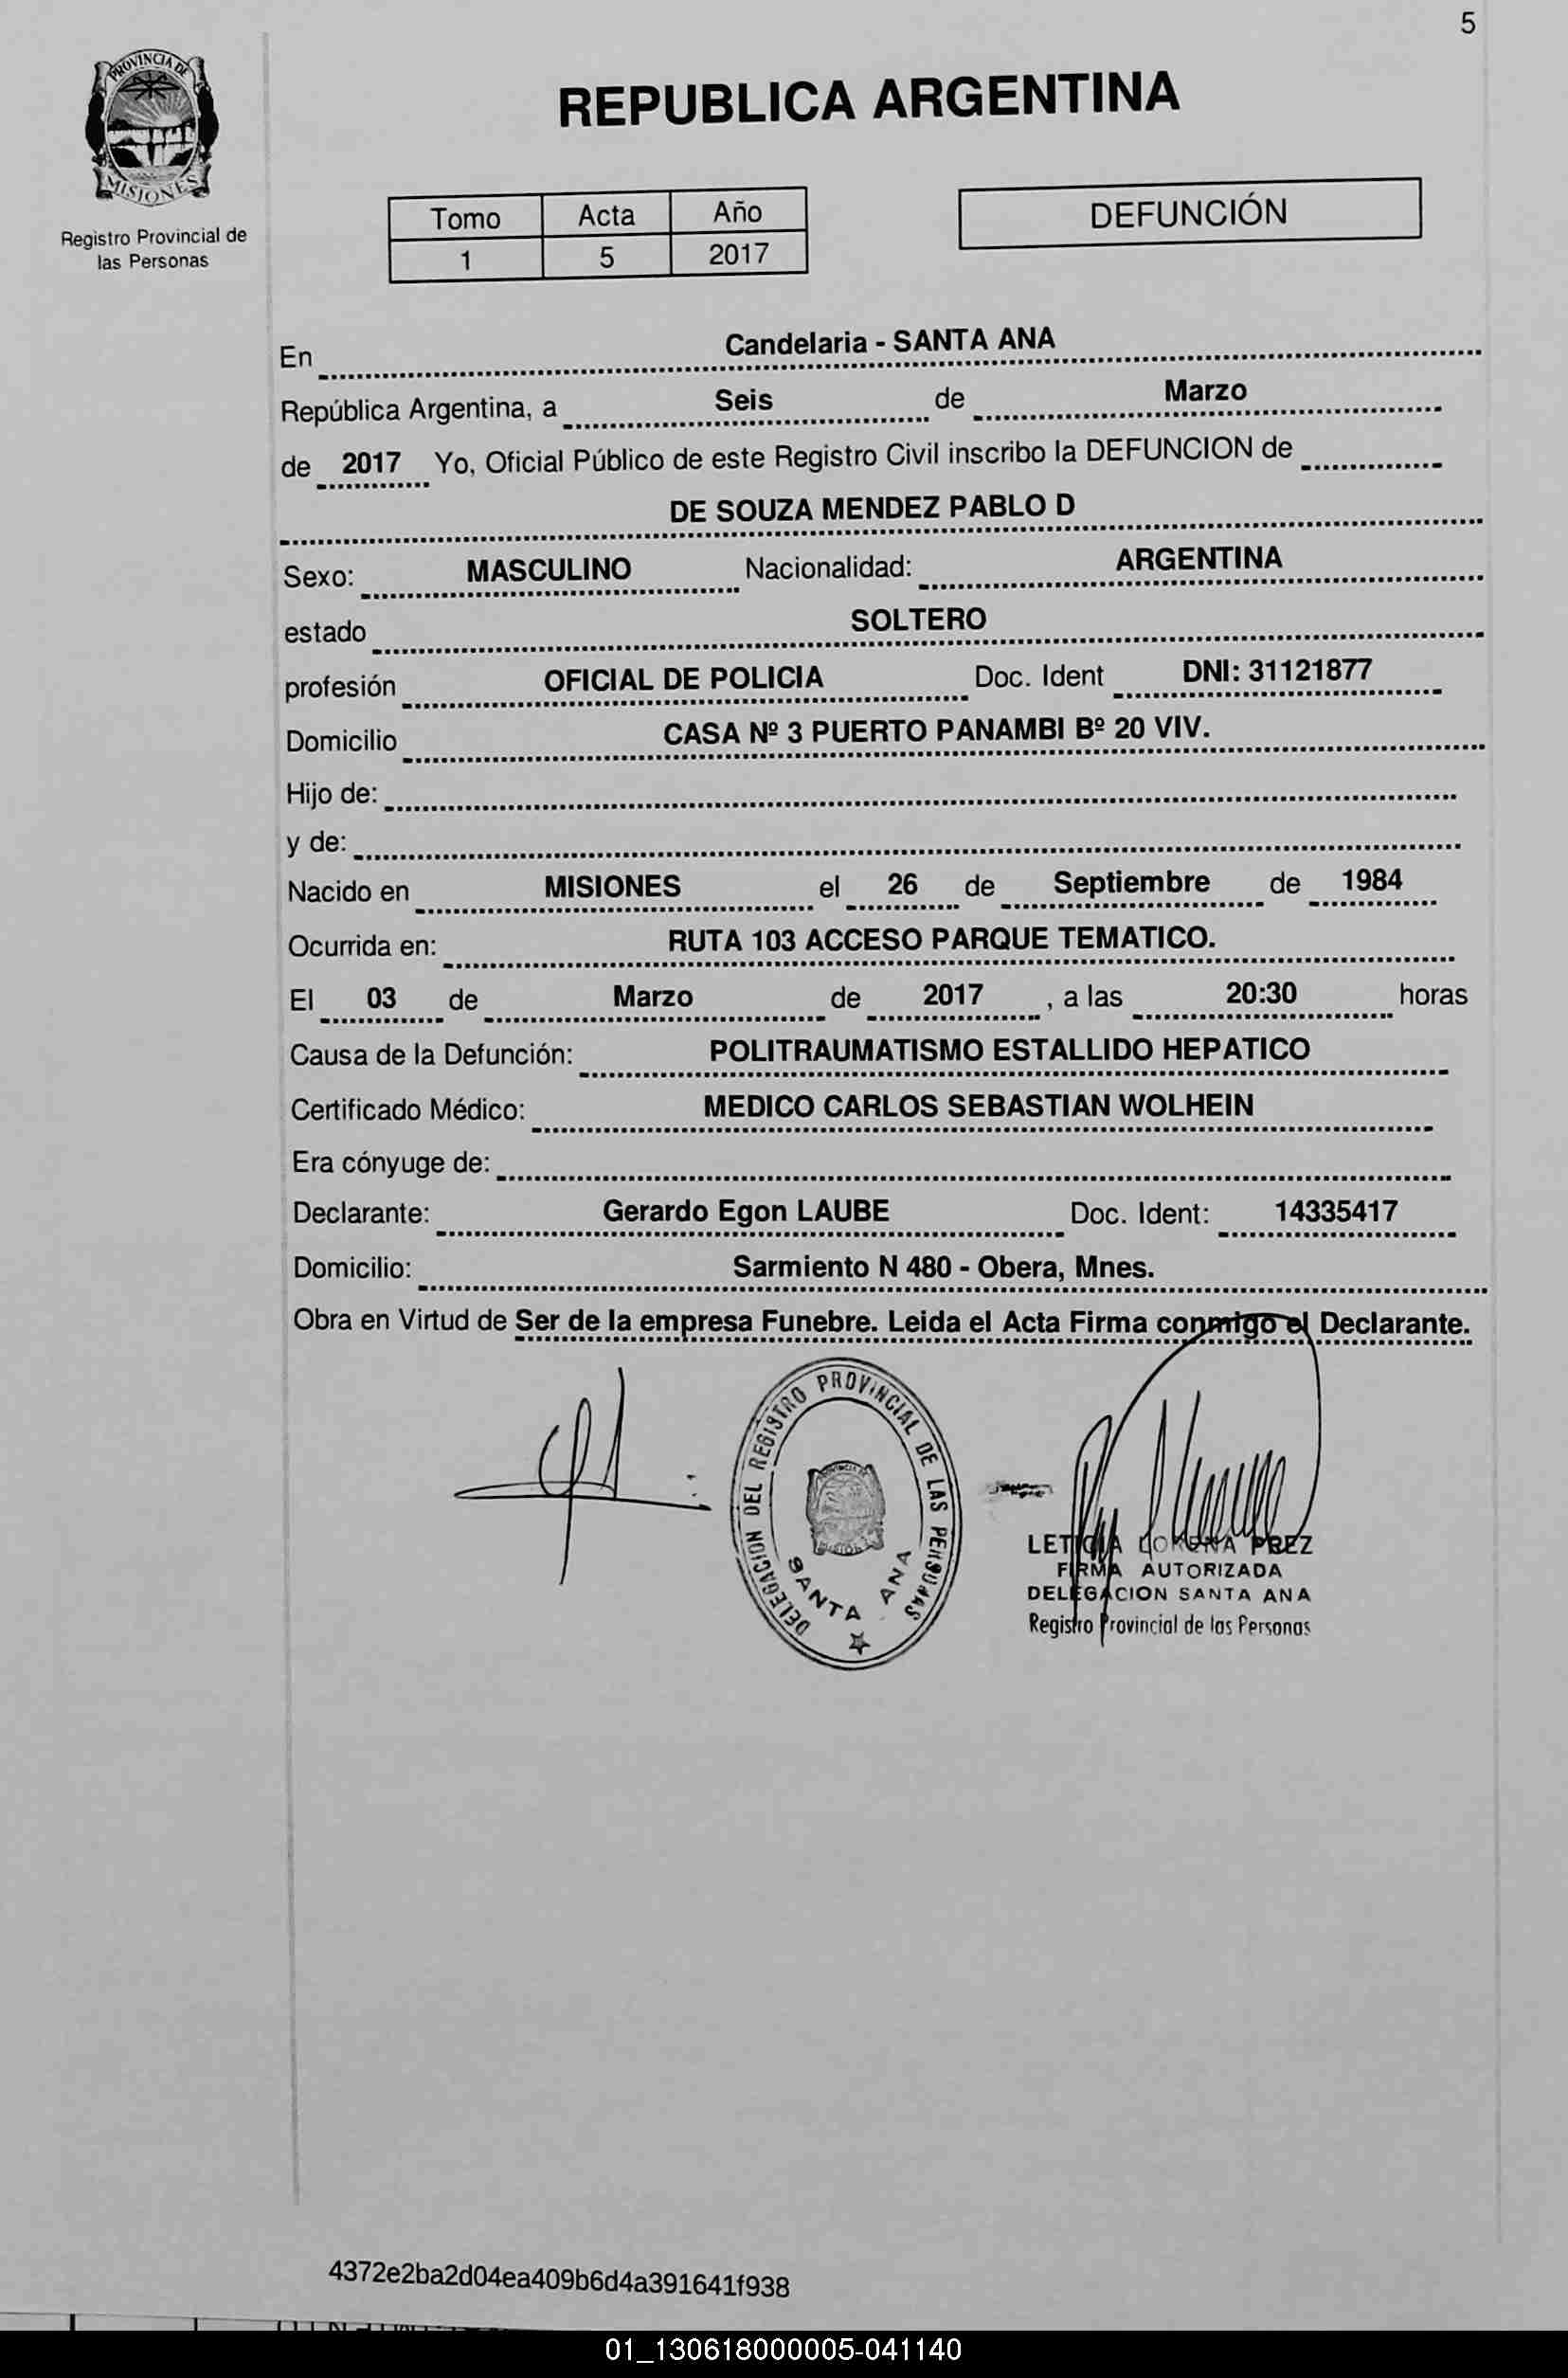 5
PROVINCIA DE
MISIONES
Registro Provincial de
las Personas
REPUBLICA ARGENTINA
Tomo Acta Año
1 5 2017
DEFUNCIÓN
En Candelaria - SANTA ANA
República Argentina, a Seis de Marzo
de 2017 Yo, Oficial Público de este Registro Civil inscribo la DEFUNCION de
DE SOUZA MENDEZ PABLO D
Sexo: MASCULINO Nacionalidad: ARGENTINA
estado SOLTERO
profesión OFICIAL DE POLICIA Doc. Ident DNI: 31121877
Domicilio CASA Nº 3 PUERTO PANAMBI Bº 20 VIV.
Hijo de:
y de:
Nacido en MISIONES el 26 de Septiembre de 1984
Ocurrida en: RUTA 103 ACCESO PARQUE TEMATICO.
El 03 de Marzo de 2017 , a las 20:30 horas
Causa de la Defunción: POLITRAUMATISMO ESTALLIDO HEPATICO
Certificado Médico: MEDICO CARLOS SEBASTIAN WOLHEIN
Era cónyuge de:
Declarante: Gerardo Egon LAUBE Doc. Ident: 14335417
Domicilio: Sarmiento N 480 - Obera, Mnes.
Obra en Virtud de Ser de la empresa Funebre. Leida el Acta Firma conmigo el Declarante.
DELEGACION DEL REGISTRO PROVINCIAL DE LAS PERSONAS
SANTA ANA
LETICIA LORENA PREZ
FIRMA AUTORIZADA
DELEGACION SANTA ANA
Registro Provincial de las Personas
4372e2ba2d04ea409b6d4a391641f938
01_130618000005-041140